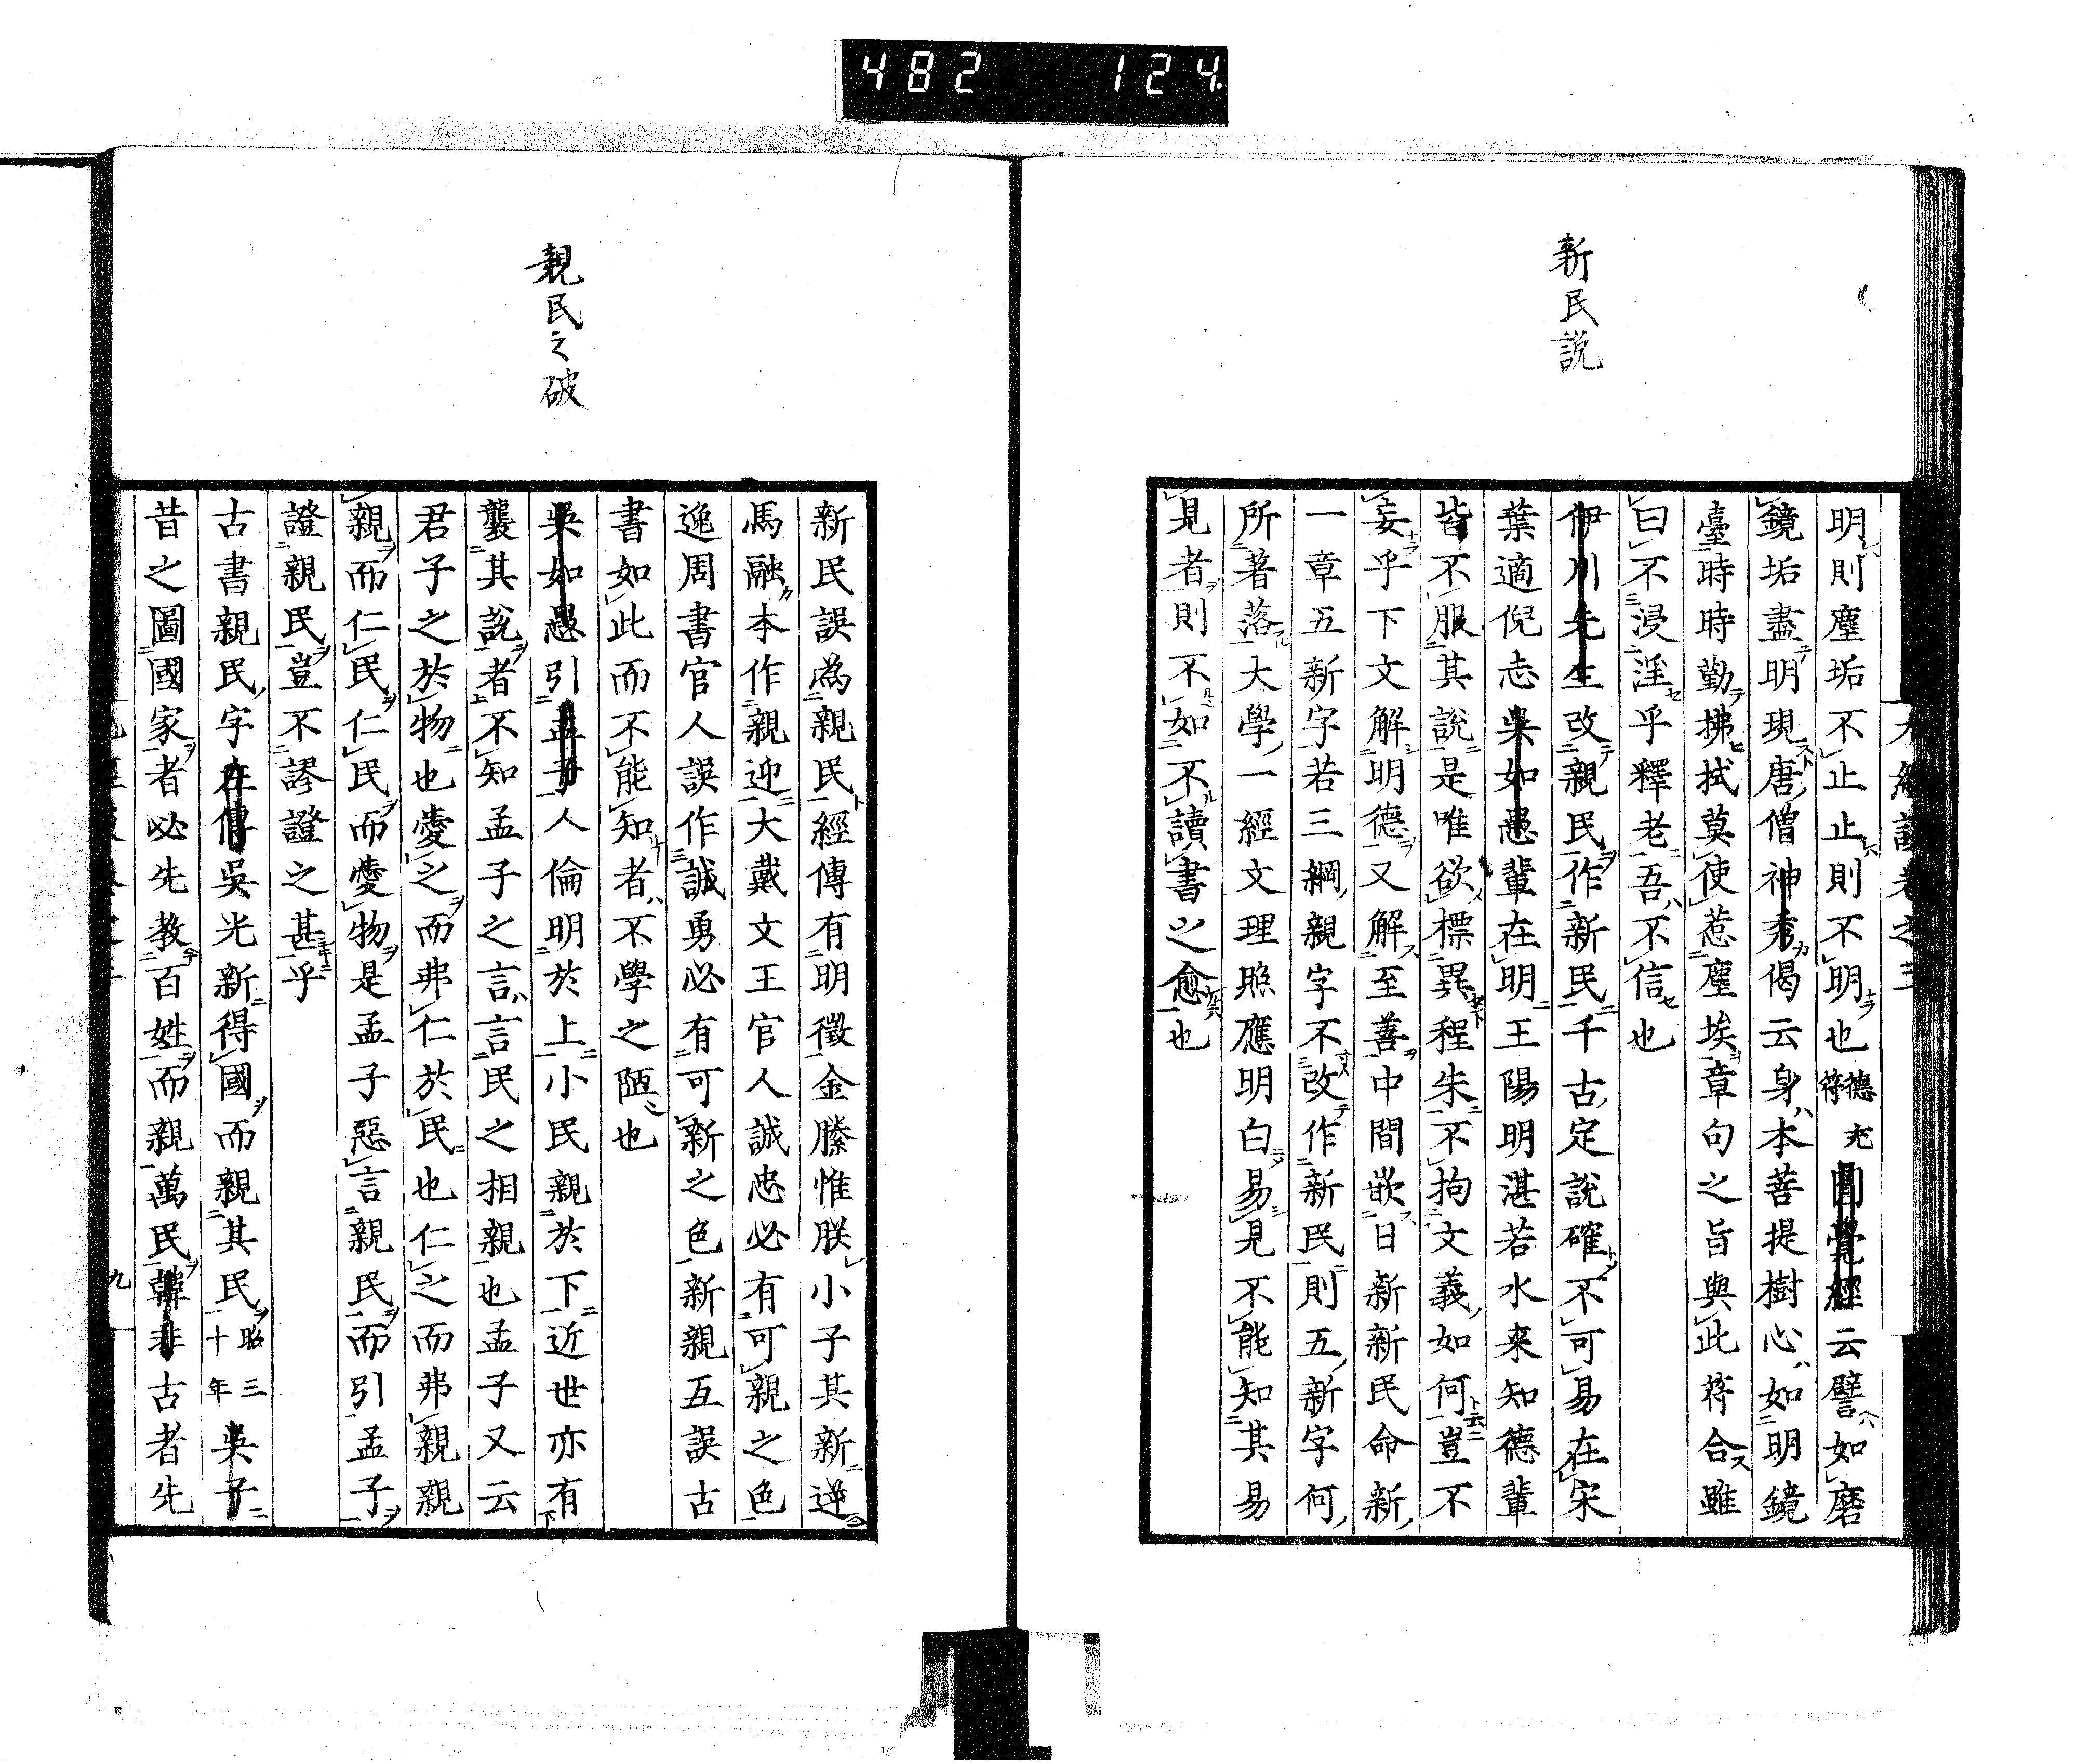 482 124.
新民說
明則塵垢不止止則不明也德充符圓覺經云譬如磨
鏡垢盡明現唐僧神秀偈云身本菩提樹心如明鏡
臺時時勤拂拭莫使惹塵埃章句之旨與此符合雖
曰不浸淫乎釋老吾不信也
伊川先生改親民作新民千古定說確不可易在宋
葉適倪志吳如愚輩在明王陽明湛若水来知德輩
皆不服其說是唯欲標異程朱不拘文義如何豈不
妄乎下文解明德又解至善中間嵌日新新民命新
一章五新字若三綱親字不改作新民則五新字何
所著落大學一經文理照應明白易見不能知其易
見者則不如不讀書之愈也
親民之破
新民誤為親民經傳有明徵金縢惟朕小子其新逆
馬融本作親迎大戴文王官人誠忠必有可親之色
逸周書官人誤作誠勇必有可新之色新親互誤古
書如此而不能知者不學之陋也
吳如愚引孟子人倫明於上小民親於下近世亦有
襲其說者不知孟子之言言民之相親也孟子又云
君子之於物也愛之而弗仁於民也仁之而弗親親
親而仁民仁民而愛物是孟子惡言親民而引孟子
證親民豈不謬證之甚乎
古書親民字在傳吳光新得國而親其民昭三十年吳子
昔之圖國家者必先教百姓而親萬民韓非古者先
九